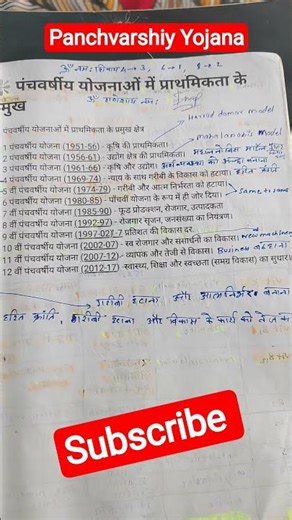 Panchvarshiy Yojana
पंचवर्षीय योजनाओं में प्राथमिकता के
मुख
Harrod domar model
पंचवर्षीय योजनाओं में प्राथमिकता के प्रमुख क्षेत्र
1 पंचवर्षीय योजना (1951-56) - कृषि की प्राथमिकता।
2 पंचवर्षीय योजना (1956-61) - उद्योग क्षेत्र की प्राथमिकता।
3 पंचवर्षीय योजना (1961-66) - कृषि और उद्योग।
4 पंचवर्षीय योजना (1969-74) - न्याय के साथ गरीबी के विकास को हटाया।
5 वीं पंचवर्षीय योजना (1974-79) - गरीबी और आत्म निर्भरता को हटाया।
6 वीं पंचवर्षीय योजना (1980-85) - पाँचवीं योजना के रूप में ही जोर दिया।
7 वीं पंचवर्षीय योजना (1985-90) - फूड प्रोडक्शन, रोजगार, उत्पादकता
8 वीं पंचवर्षीय योजना (1992-97) - रोजगार सृजन, जनसंख्या का नियंत्रण।
9 वीं पंचवर्षीय योजना (1997-02) -7 प्रतिशत की विकास दर.
10 वीं पंचवर्षीय योजना (2002-07) - स्व रोजगार और संसाधनों का विकास।
11 वीं पंचवर्षीय योजना (2007-12) - व्यापक और तेजी से विकास।
12 वीं पंचवर्षीय योजना (2012-17) - स्वास्थ्य, शिक्षा और स्वच्छता (समग्र विकास) का सुधार।
गरीबी हटाना और आत्मनिर्भर बनाना
हरित क्रांति, गरीबी हटाना और विकास के कार्य को तेज
Subscribe